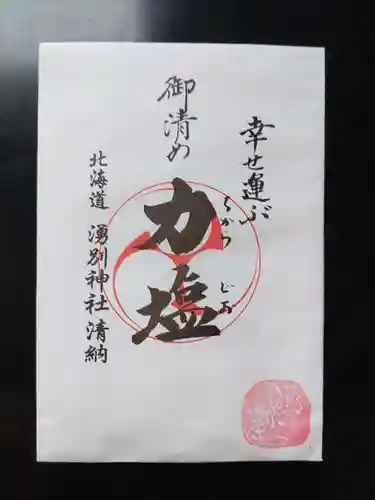 幸せ運ぶ
御清め
力塩
ちから
じお
北海道 湧別神社 清納